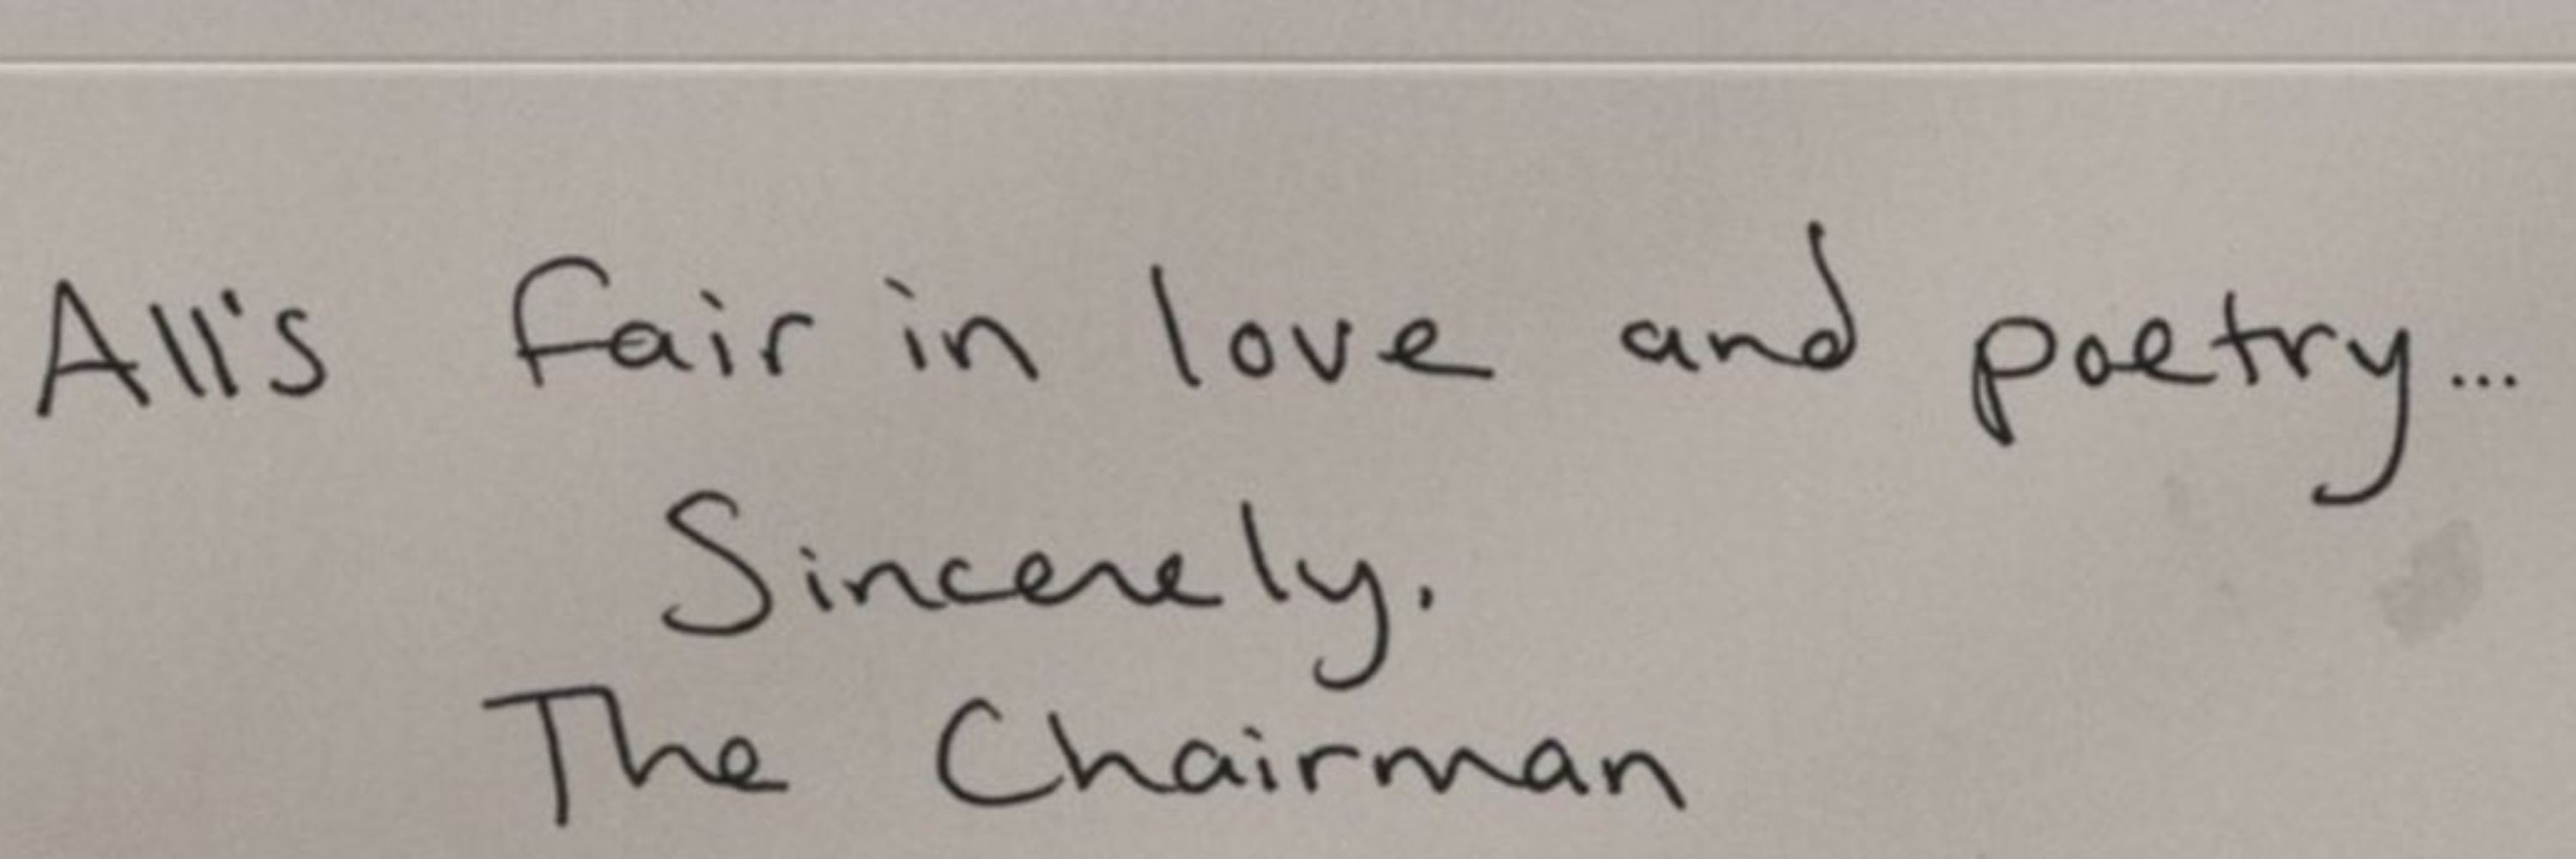 All's fair in love and poetry...
Sincerely.
The Chairman